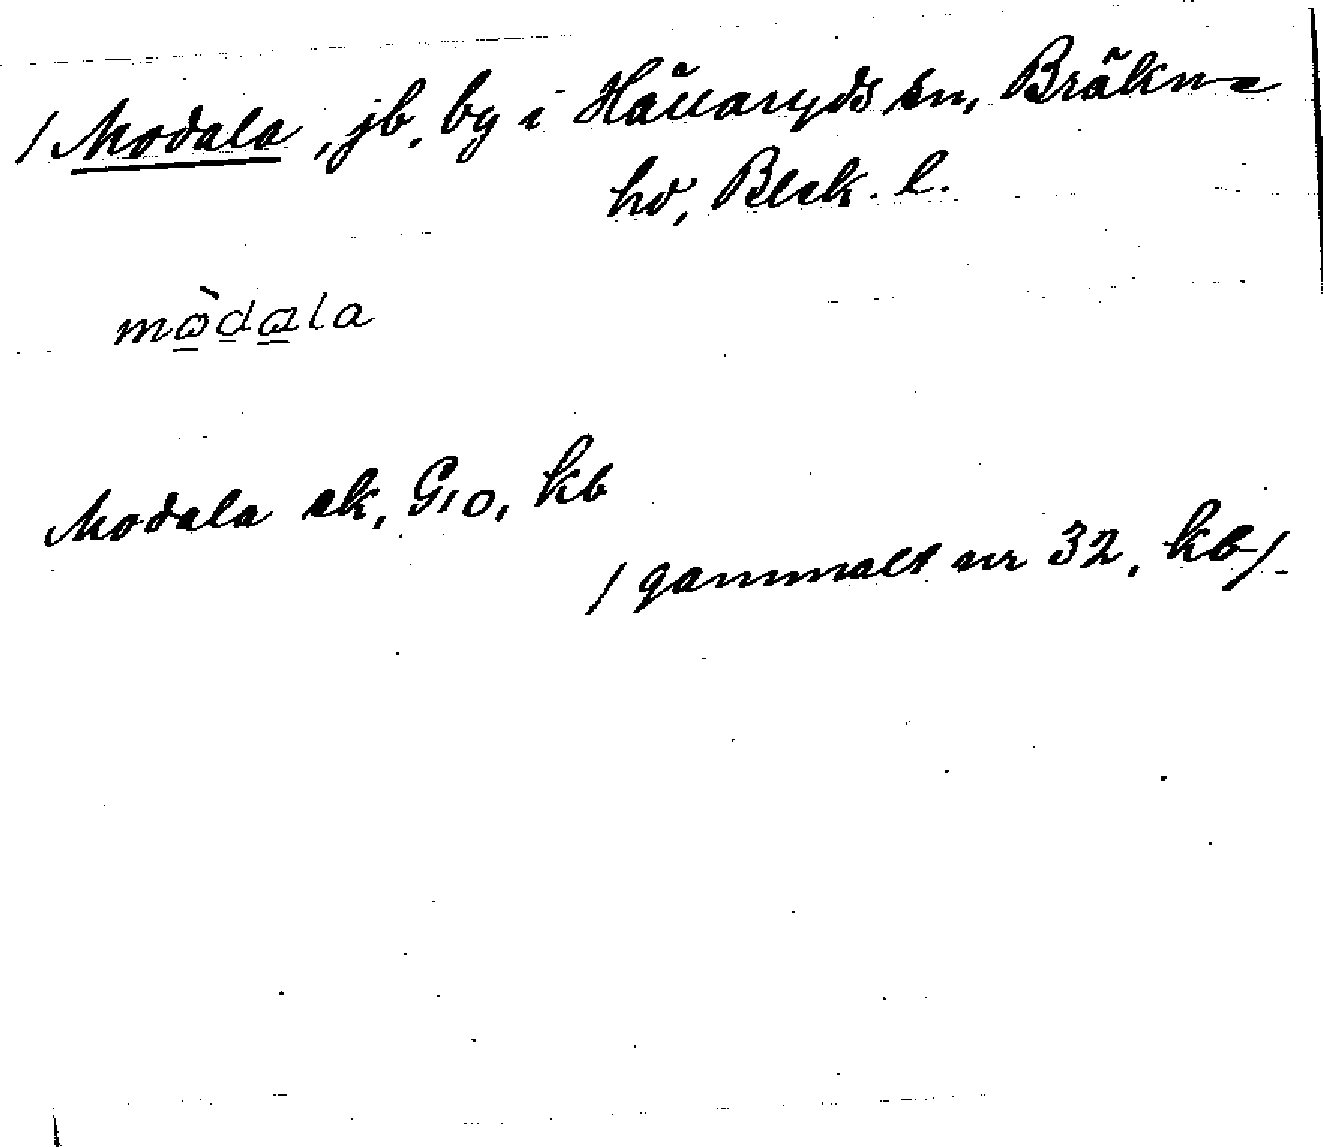 / Modala, jb. by i Hällaryds sn, Bräkne
hd, Blek. l.
mòdala
Modala ek, G10, kb
/ gammalt nr 32, kb /